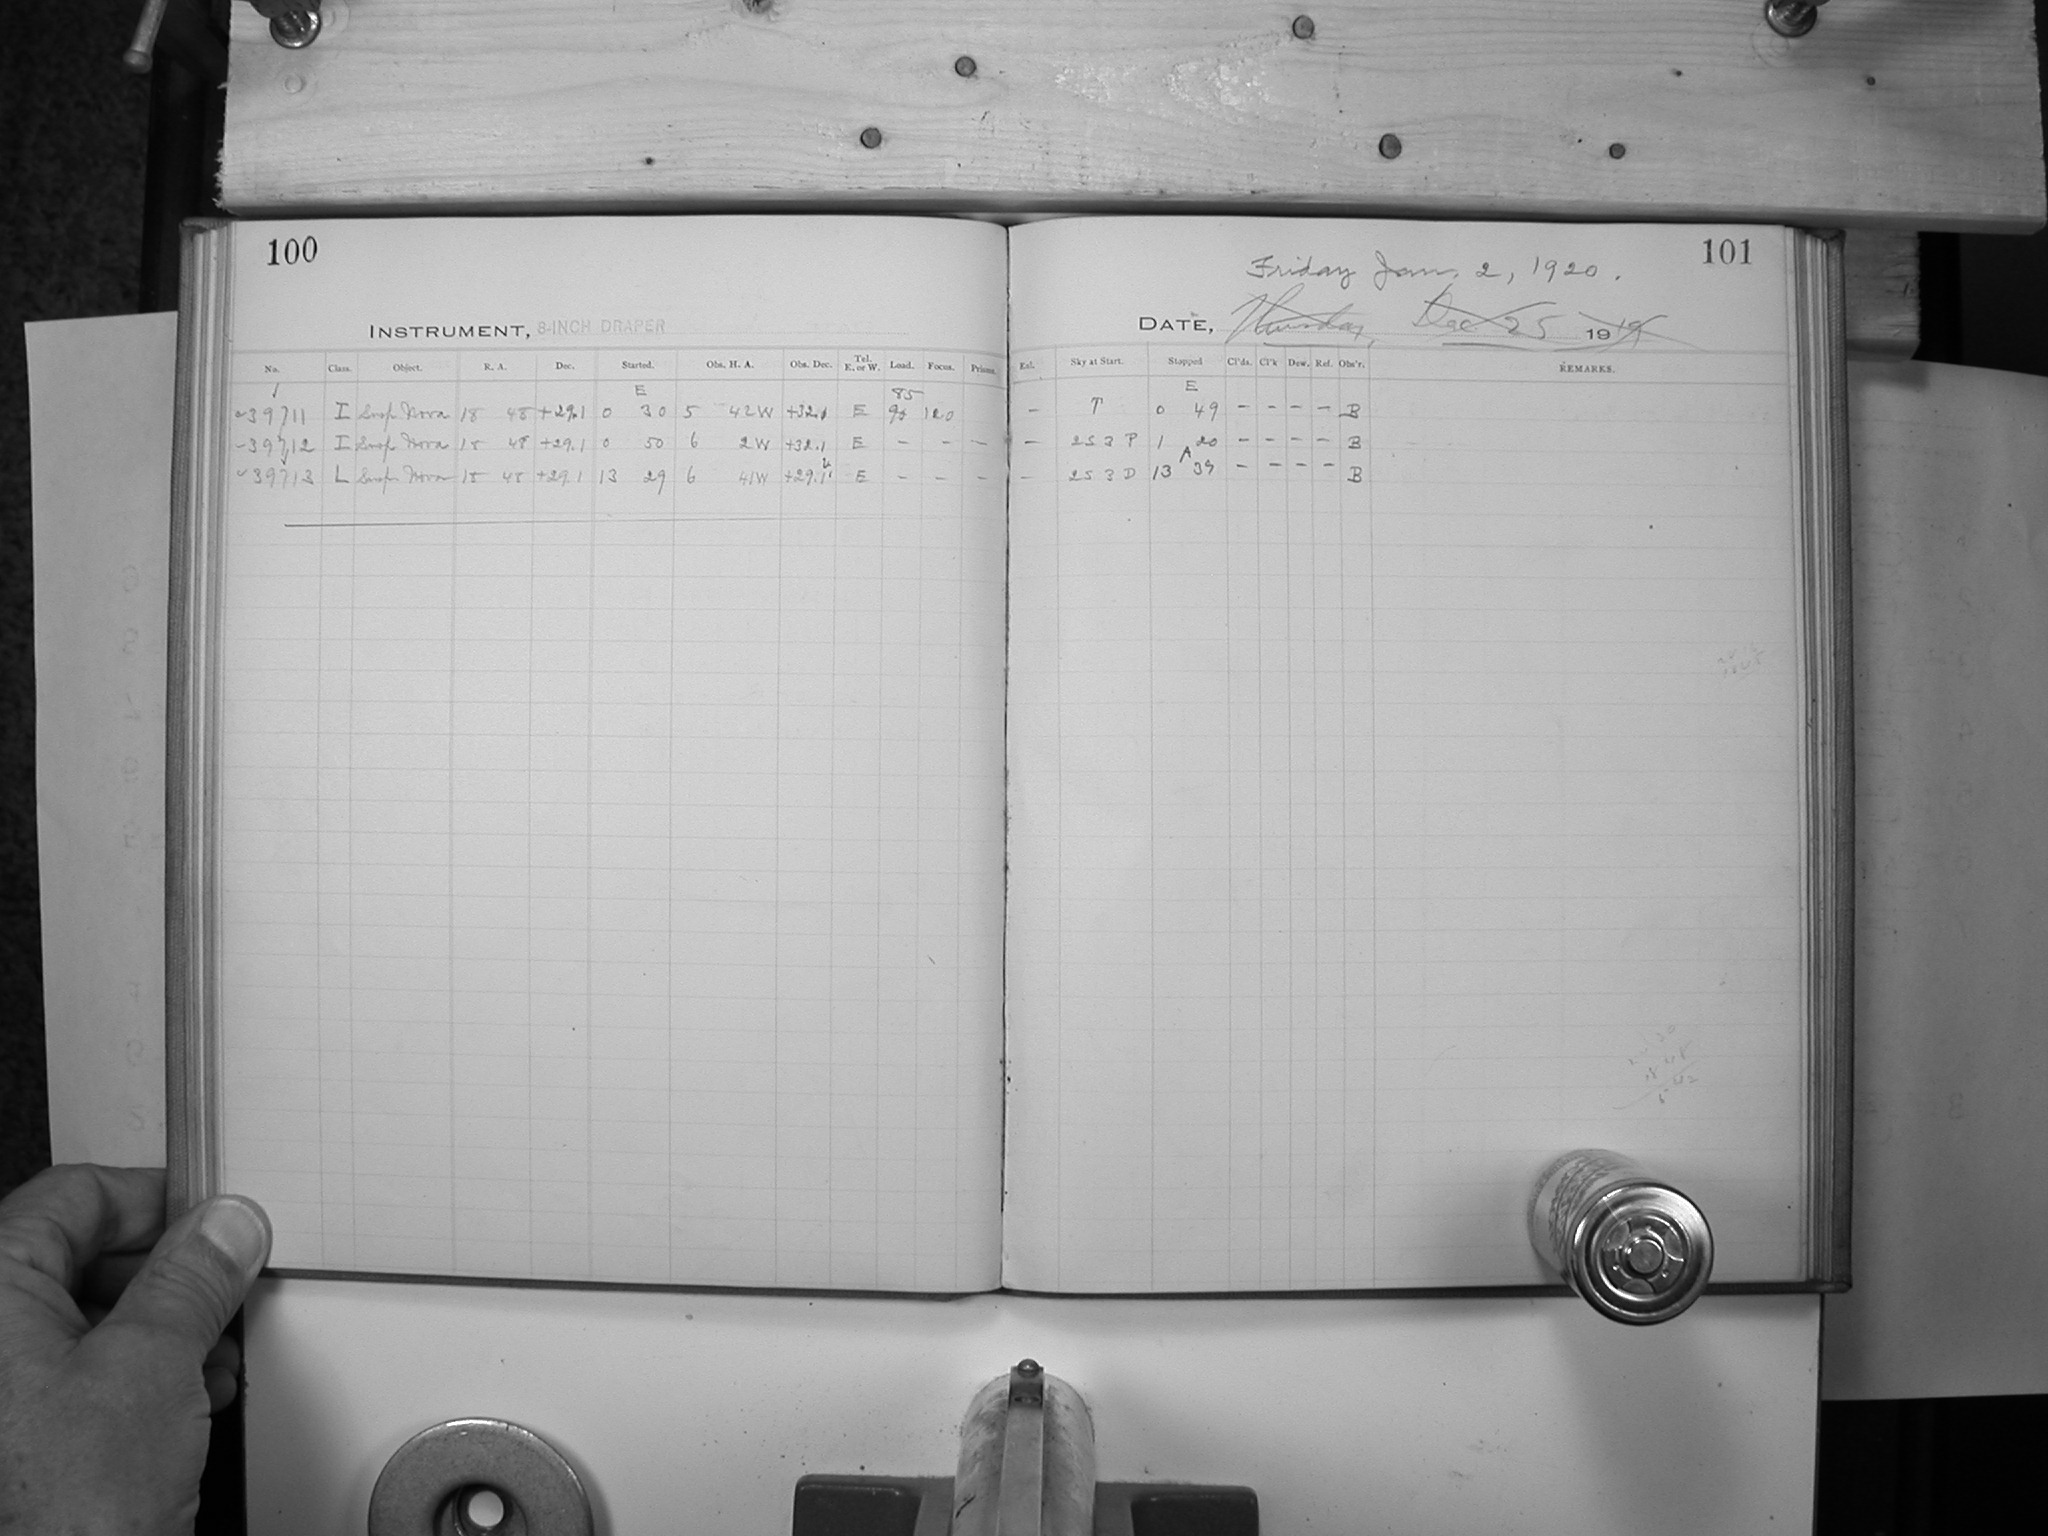 100
INSTRUMENT, 8-INCH DRAPER
No. Class. Object. R. A. Dec. Started. Obs. H. A. Obs. Dec. Tel. E. or W. Load. Focus. Prisms.
E 85
39711 I Susp Nova 18 48 +29.1 0 30 5 42W +32.1 E 95 120
39712 I Susp Nova 18 48 +29.1 0 50 6 2W +32.1 E – – –
39713 L Susp. Nova 18 48 +29.1 13 29 6 41W +29.1 E – – –
101
Friday Jan. 2, 1920.
DATE, Thursday, Dec 25 1919
Exl. Sky at Start. Stopped Cl'ds. Cl'k Dew. Ref. Obs'r. REMARKS.
E
– T 0 49 – – – – B
– 2S 3 P 1 20 – – – – B
A
– 2S 3 D 13 39 – – – – B